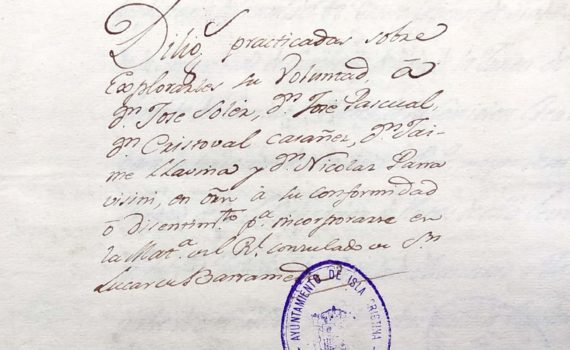 Dilig.s practicadas sobre
Explorarles su Voluntad, à
Dn. José Solér, Dn. José Pascual,
Dn. Cristoval Casañez, Dn. Jai-
me Llavina y Dn. Nicolas Pana
visini, en orn à su conformidad
ò disentim.to p.a incorporarse en
la Mat.a del Rl. Consulado de Sn
Lucar de Barrameda
AYUNTAMIENTO DE ISLA CRISTINA